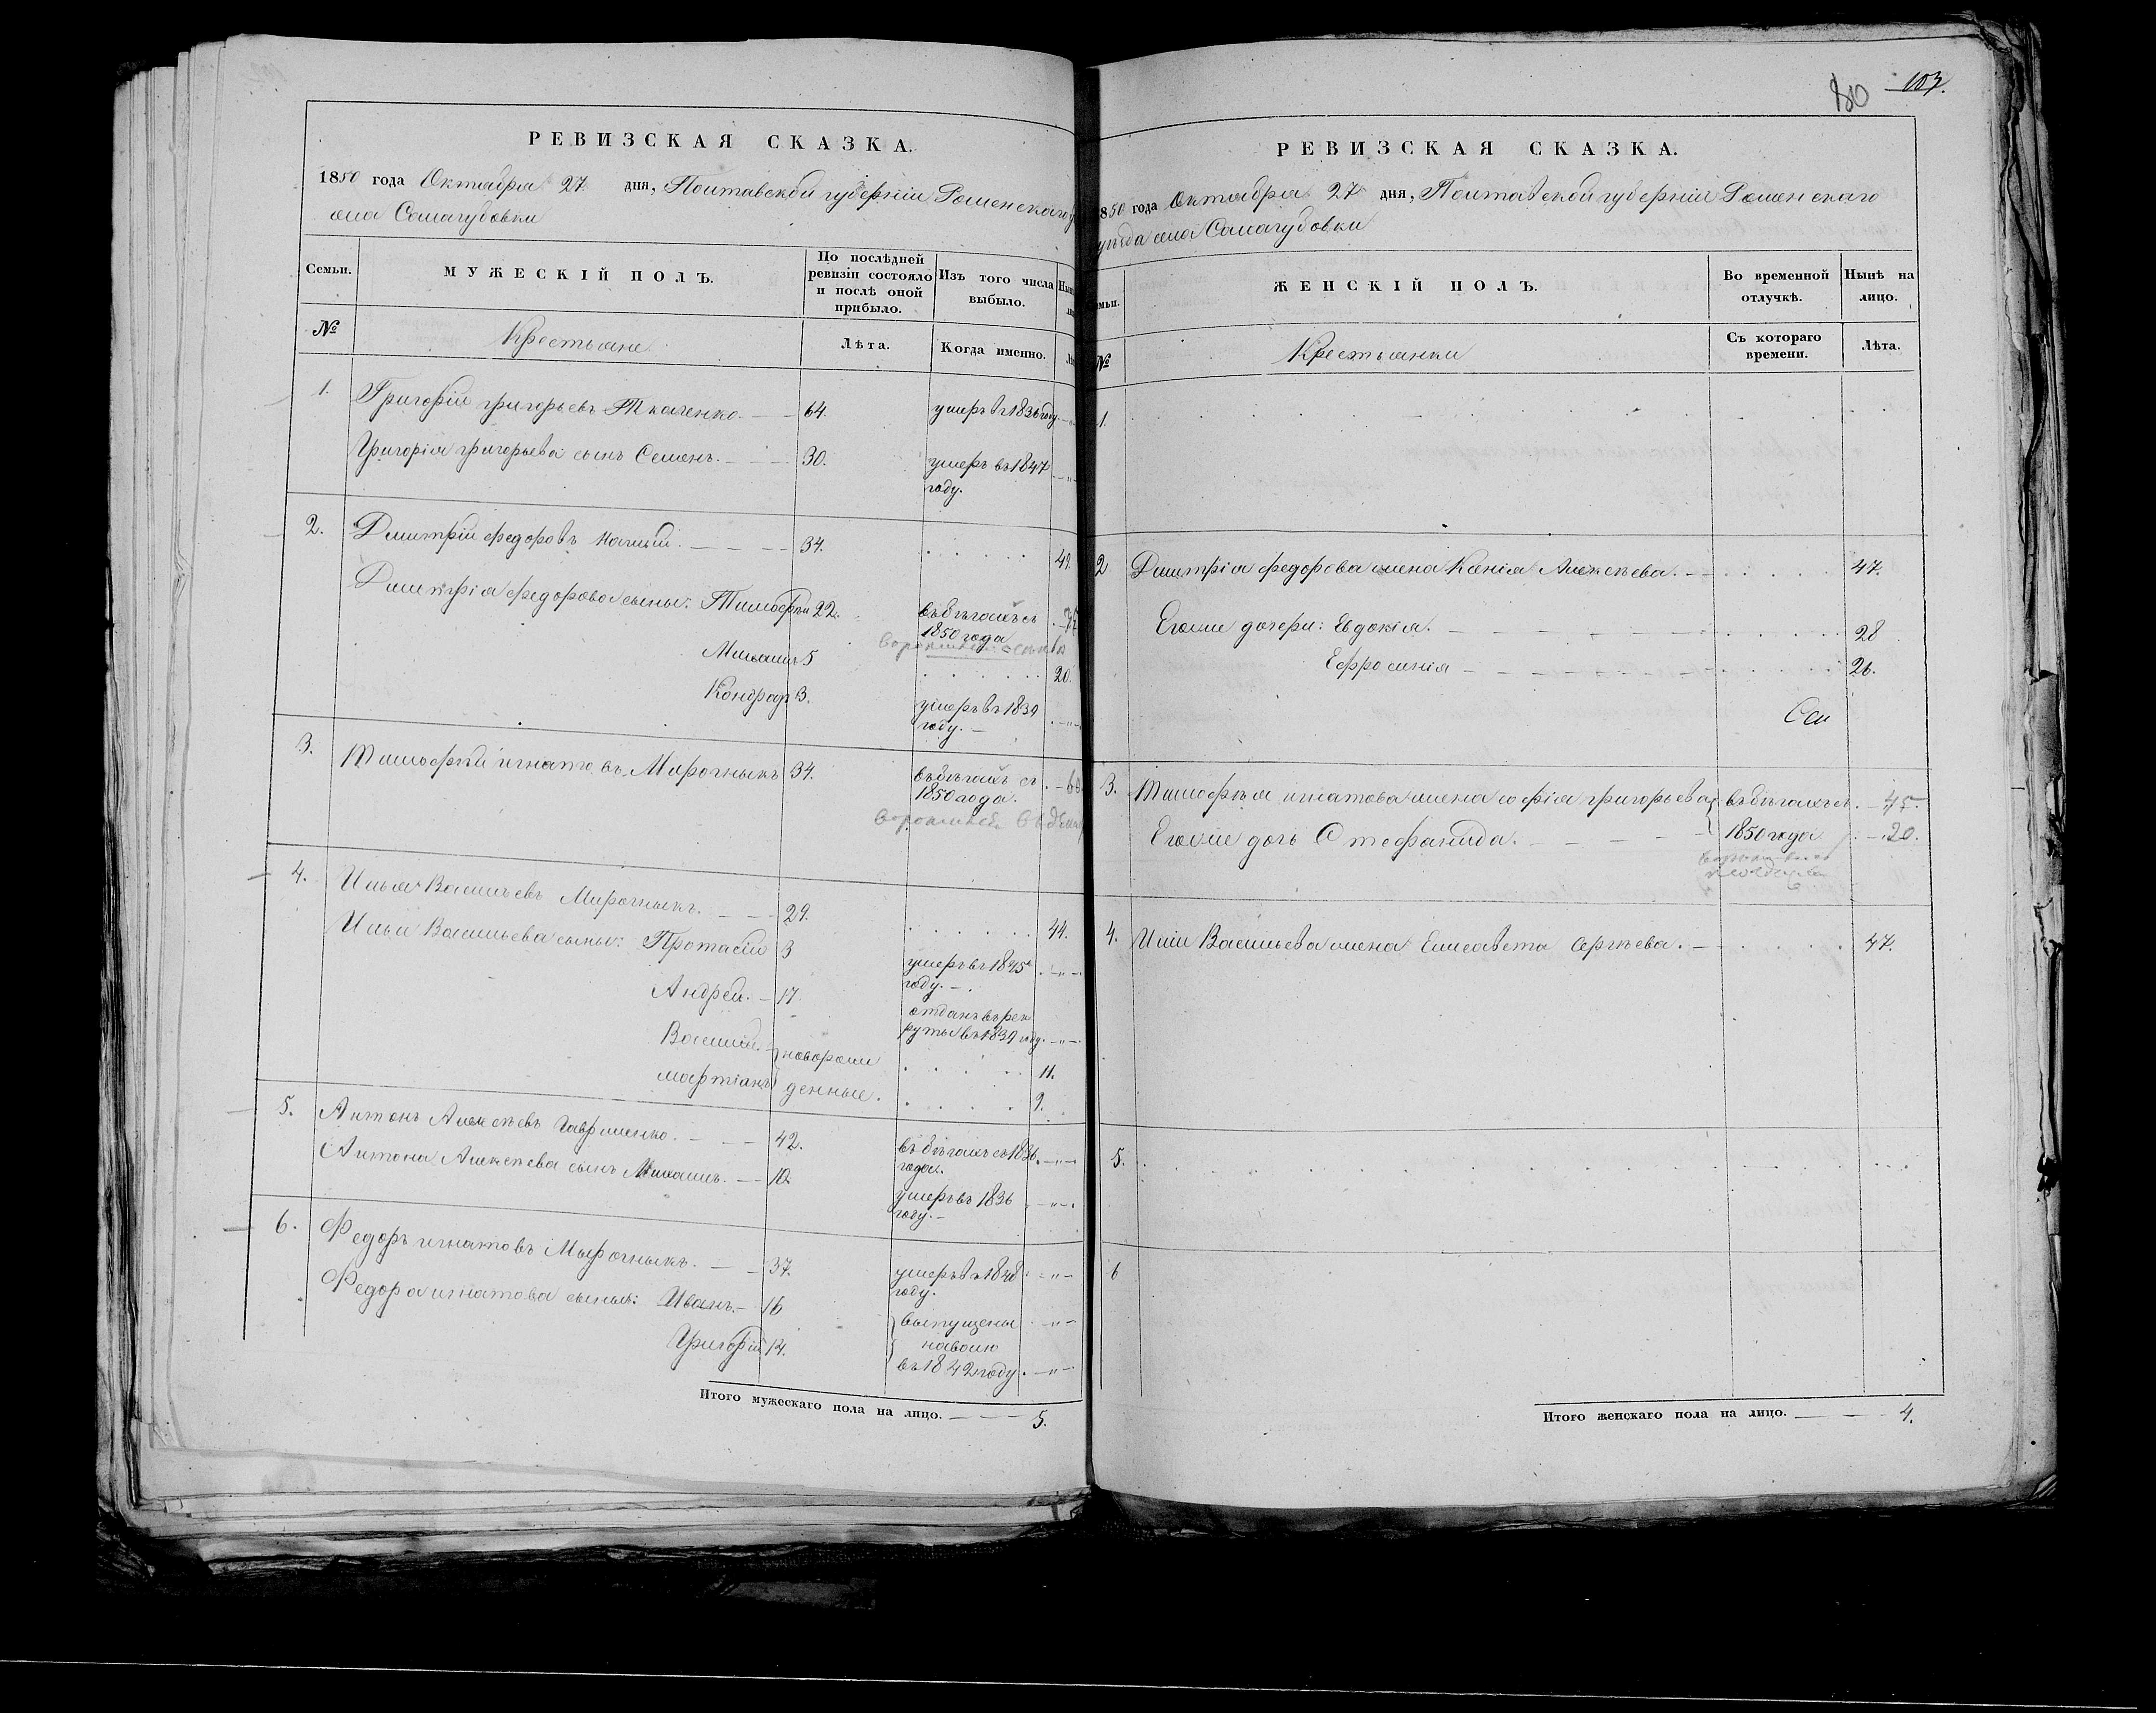 РЕВИЗСКАЯ СКАЗКА.
1850 года Октября 27 дня, Полтавской губерніи Роменскаго
села Самагубовки
Семьи.
МУЖЕСКІЙ ПОЛЪ.
По послѣдней ревизіи состояло и послѣ оной прибыло.
Изъ того числа выбыло.
№
Крестьяне
Лѣта.
Когда именно.
1. Григорій григорьевъ Ткаченко. 64. умеръ въ 1836 году.
Григорія григорьева сынъ Семенъ. 30. умеръ въ 1847
году.
2. Дмитрій федоровъ 34. 49.
Дмитрія федорова сыны: Тимофѣй 22. въ бѣгахъ съ
1850 года
5 20.
Кондрат 3. умеръ въ 1839
году.
3. Тимофѣй игнатовъ Мирочныкъ 34. въ бѣгахъ съ
1850 года.
4. Илья Васильевъ Мирочныкъ. 29. 44.
Ильи Васильева сыны: Протасій 3 умеръ въ 1845
году.
Андрей. 17 отданъ въ рек
руты въ 1839 году.
Василій. новорож 11.
мартіанъ денные. 9.
5. Антонъ Алексѣевъ Гавриленко. 42. въ бѣгахъ съ 1836
года.
Антона Алексѣева сынъ Михаилъ. 10. умеръ въ 1836
году.
6. Федоръ игнатовъ Мырочныкъ. 37. умеръ въ 1848
году.
Федора игнатова сыны: Иванъ. 16 выпущены
на волю
Григорій 14. въ 1842 году.
Итого мужескаго пола на лицо. 5.
80 103.
РЕВИЗСКАЯ СКАЗКА.
1850 года Октября 27 дня, Полтавской губерніи Роменскаго
уѣзда села Самагубовки
ЖЕНСКІЙ ПОЛЪ.
Во временной отлучкѣ.
Нынѣ на лицо.
№
Крестьянки
Съ котораго времени.
Лѣта.
1.
2 Дмитрія федорова жена Ксенія Алексѣева. 47.
Его же дочери: Евдокія. 28
Ефросинія 26.
3. Тимофѣя игнатова жена софія григорьева въ бѣгахъ съ 45.
Его же дочь Стефанида. 1850 года 20.
4. Ильи Васильева жена Елисавета сергѣева. 47.
5.
6
Итого женскаго пола на лицо. 4.